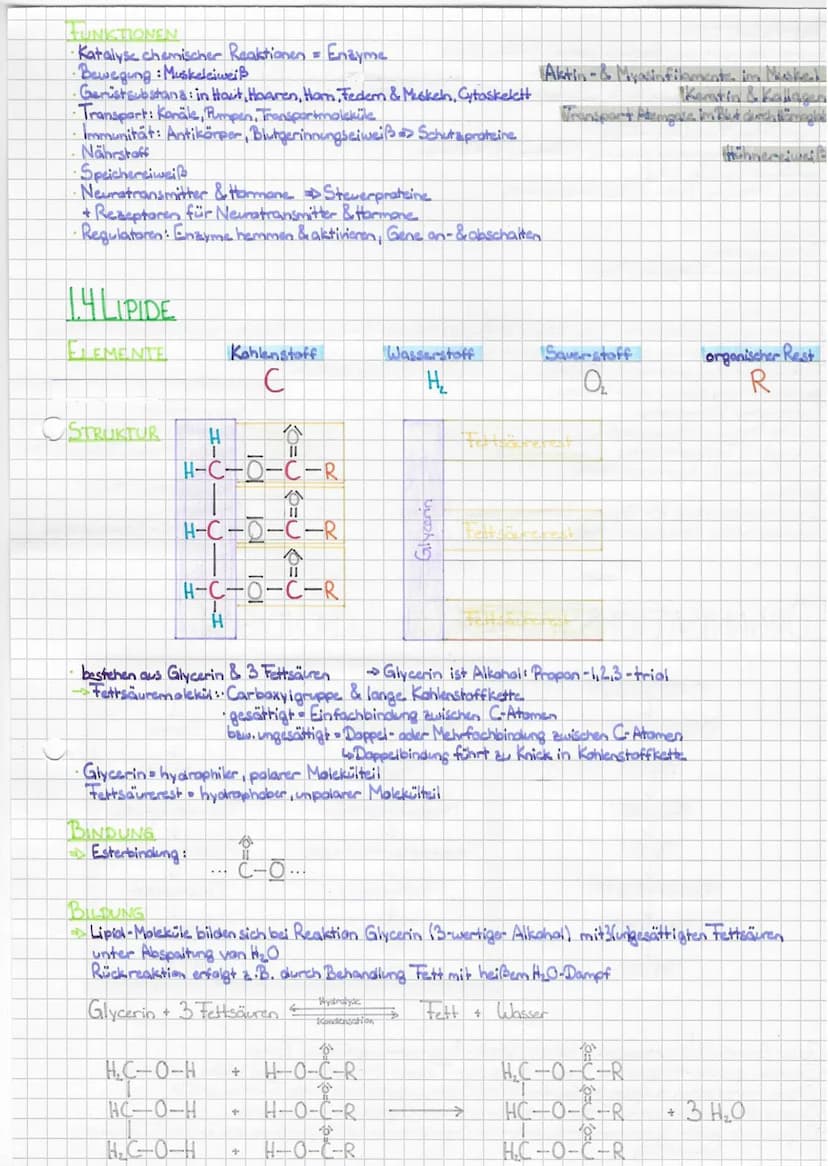 FUNKTIONEN
· Katalyse chemischer Reaktionen = Enzyme
· Bewegung: Muskeleiweiß
Aktin- & Myosinfilamente im Muskel
· Gerüstsubstanz: in Haut, Haaren, Horn, Federn & Muskeln, Cytoskelett
Keratin & Kollagen
· Transport: Kanäle, Pumpen, Transportmoleküle
Transport Atemgase im Blut durch
· Immunität: Antikörper, Blutgerinnungseiweiß => Schutzproteine
· Nährstoff
Hühnereiweiß
· Speichereiweiß
· Neurotransmitter & Hormone => Steuerproteine
+ Rezeptoren für Neurotransmitter & Hormone
· Regulatoren: Enzyme hemmen & aktivieren, Gene an- & abschalten
1.4 LIPIDE
ELEMENTE Kohlenstoff Wasserstoff Sauerstoff organischer Rest
C H₂ O₂ R
STRUKTUR
H O
H-C-O-C-R
Fettsäurerest
O
H-C-O-C-R
Glycerin
Fettsäurerest
O
H-C-O-C-R
H
Fettsäurerest
· bestehen aus Glycerin & 3 Fettsäuren → Glycerin ist Alkohol: Propan-1,2,3-triol
→ Fettsäuremolekül: · Carboxylgruppe & lange Kohlenstoffkette
· gesättigt = Einfachbindung zwischen C-Atomen
bzw. ungesättigt = Doppel- oder Mehrfachbindung zwischen C-Atomen
↳ Doppelbindung führt zu Knick in Kohlenstoffkette
· Glycerin = hydrophiler, polarer Molekülteil
Fettsäurerest = hydrophober, unpolarer Molekülteil
BINDUNG
=> Esterbindung:
O
... C-O...
BILDUNG
=> Lipid-Moleküle bilden sich bei Reaktion Glycerin (3-wertiger Alkohol) mit 3 (un)gesättigten Fettsäuren
unter Abspaltung von H₂O
Rückreaktion erfolgt z.B. durch Behandlung Fett mit heißem H₂O-Dampf
Glycerin + 3 Fettsäuren Hydrolyse Kondensation Fett + Wasser
O O
H₂C-O-H + H-O-C-R H₂C-O-C-R
O O
HC-O-H + H-O-C-R → HC-O-C-R + 3 H₂O
O O
H₂C-O-H + H-O-C-R H₂C-O-C-R